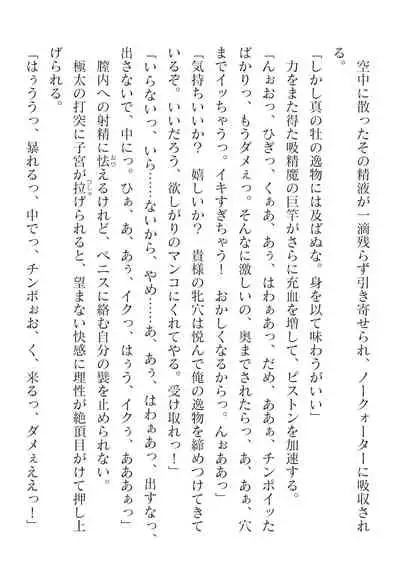 空中に散ったその精液が一滴残らず引き寄せられ、ノークォーターに吸収され
る。
「しかし真の牡の逸物には及ばぬな。身を以て味わうがいい」
　力をまた得た吸精魔の巨竿がさらに充血を増して、ピストンを加速する。
「んぉおっ、ひぎっ、くぁあ、あぅ、はわぁあっ、だめ、ああぁ、チンポイッた
ばかりっ、もうダメぇっ。そんなに激しいの、奥までされたらっ、あ、あぁ、穴
までイッちゃうっ。イキすぎちゃう！　おかしくなるからっ。んぉああっ」
「気持ちいいか？　嬉しいか？　貴様の牝穴は悦んで俺の逸物を締めつけてきて
いるぞ。いいだろう、欲しがりのマンコにくれてやる。受け取れっ！」
「いらないっ、いら……ないから、やめ……あ、あぅ、はわぁあっ、出すなっ、
出さないで、中にっ。ひぁ、あ、あぅ、イクっ、はぅう、イクぅ、あああぁっ」
　膣内への射精に怯えるけれど、ペニスに絡む自分の襞を止められない。
　極太の打突に子宮が拉げられると、望まない快感に理性が絶頂目がけて押し上
げられる。
「はぅううっ、暴れるっ、中でっ、チンポぉお、く、来るっ、ダメぇええっ！」